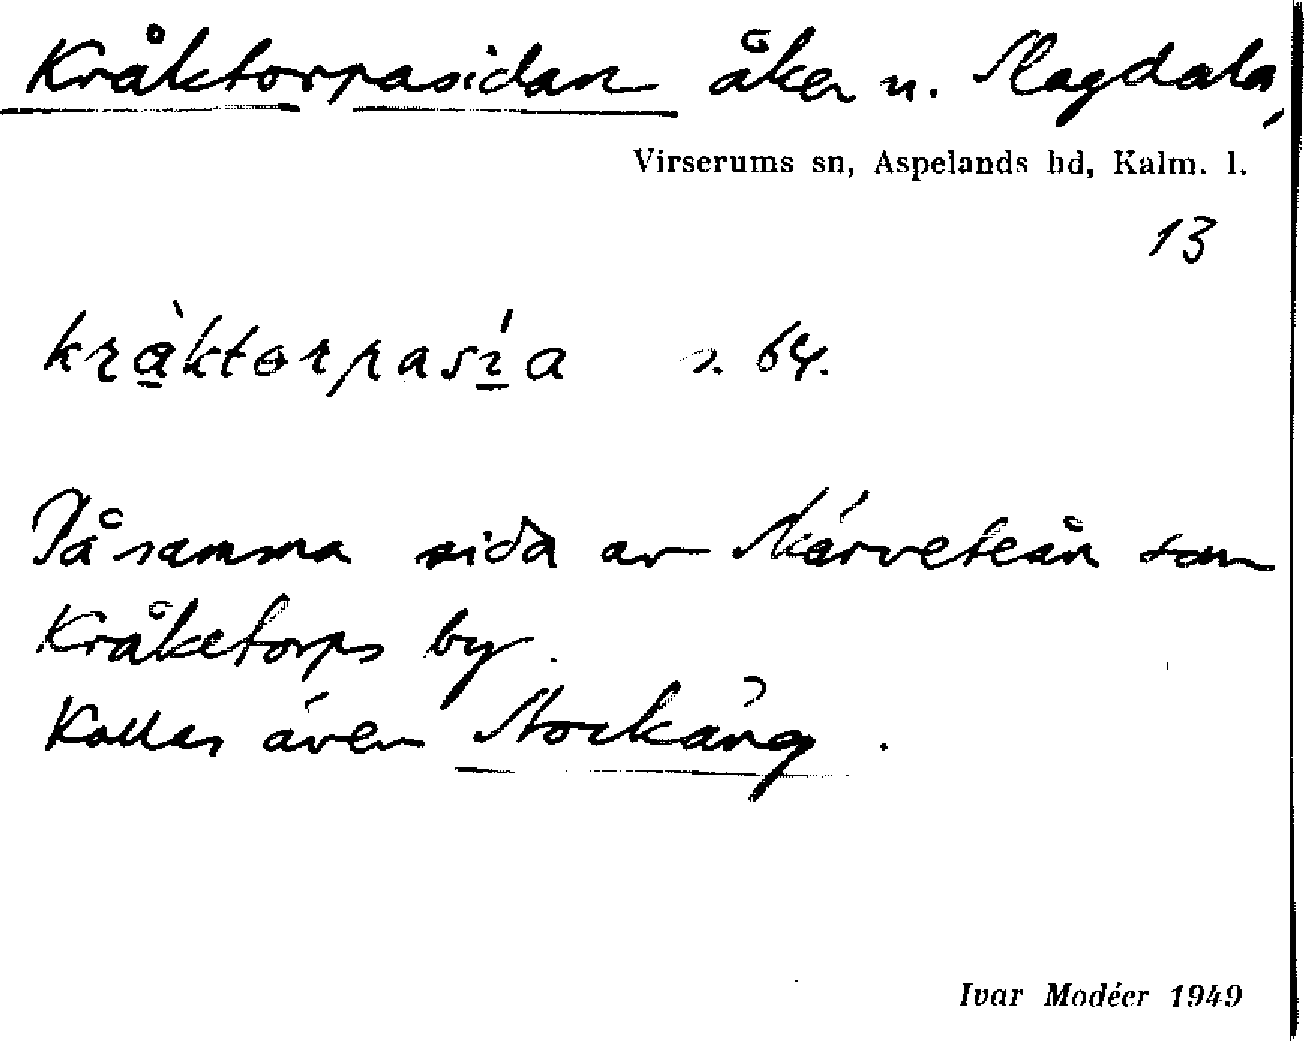 Kråktorpasidan åker n. Magdala,
Virserums sn, Aspelands hd, Kalm. l.
13
kràktorpasía s. 64.
På samma sida av Närveteån som
Kråketorps by.
Kallas även Stockäng.
Ivar Modéer 1949